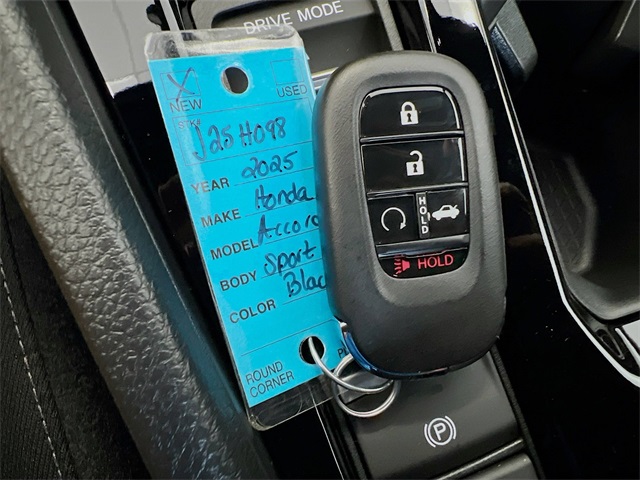 DRIVE MODE
NEW
USED
STK#
J25H098
YEAR 2025
MAKE Honda
MODEL Accord
BODY Sport
COLOR Blac
ROUND
CORNER
HOLD
HOLD
P